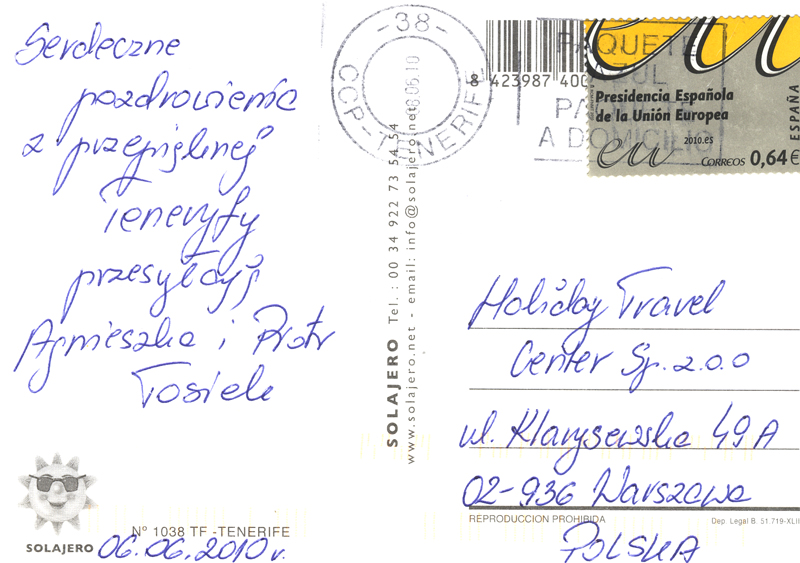 Serdeczne
pozdrowienia
z przepięknej
Teneryfy
przesyłają
Agnieszka i Piotr
Tosiek
SOLAJERO
Nº 1038 TF -TENERIFE
06.06.2010 r.
SOLAJERO Tel.: 00 34 922 73 54 54
www.solajero.net - email: info@solajero.net
-38-
CCP-TENERIFE
06 10
8 423987 400
PAQUETE
AZUL
PA
A DOMICILIO
Presidencia Española
de la Unión Europea
eu 2010.es
CORREOS 0,64 €
ESPAÑA
Holiday Travel
Center Sp. z o.o
ul. Klarysewska 49A
02-936 Warszawa
REPRODUCCION PROHIBIDA
Dep. Legal B. 51.719-XLII
POLSKA